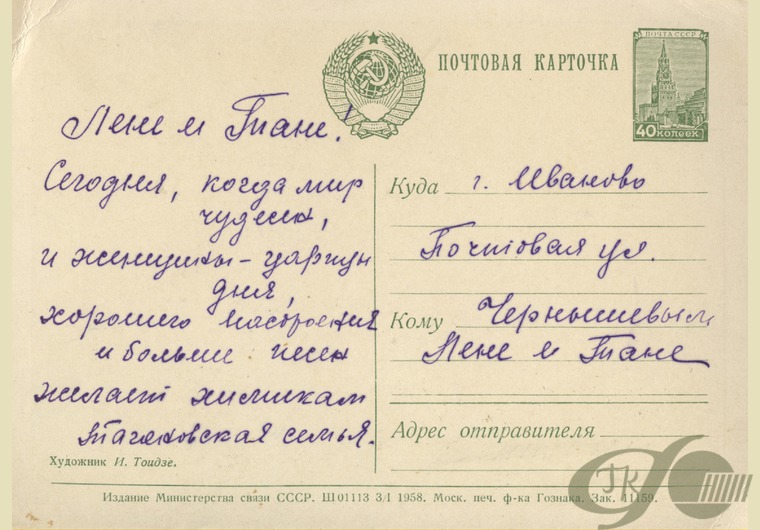 ПОЧТА СССР
40 копеек
ПОЧТОВАЯ КАРТОЧКА
Лене и Тане!
Сегодня, когда мир
чудесен,
и женщины - царицы
дня,
хорошего настроения
и больше песен
желает химикам
семья.
Художник И. Тоидзе.
Куда г. Иваново
Почтовая ул.
Кому Чернышевым
Лене и Тане
Адрес отправителя
Издание Министерства связи СССР. Ш01113 3/I 1958. Моск. печ. ф-ка Гознака. Зак. 11159.
ГК